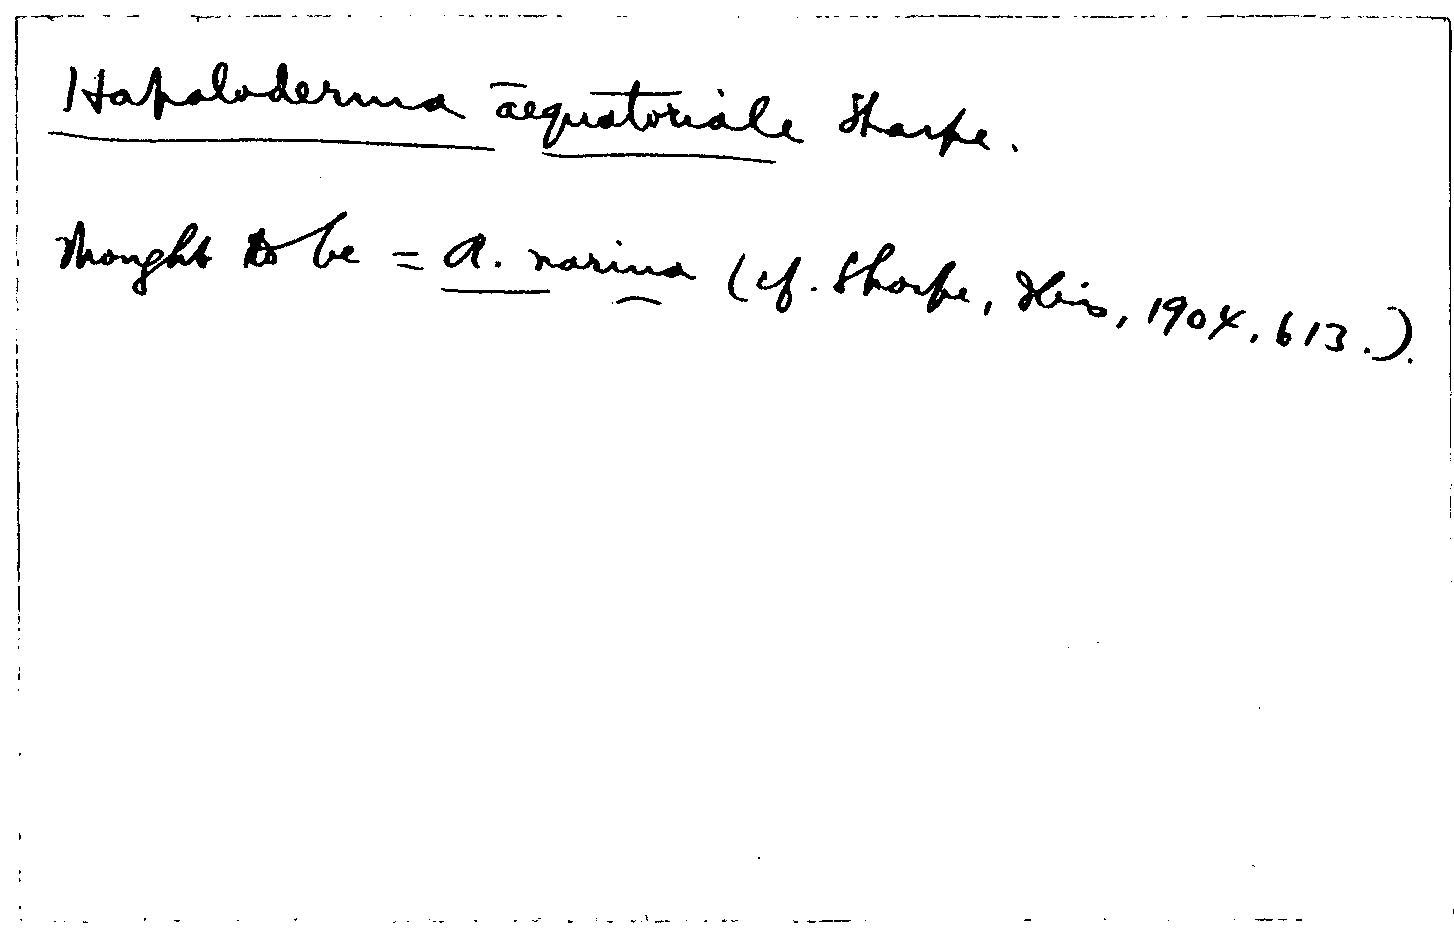 Hapaloderma aequatoriale Sharpe.
Thought to be = A. narina (cf. Sharpe, Ibis, 1904, 613.).